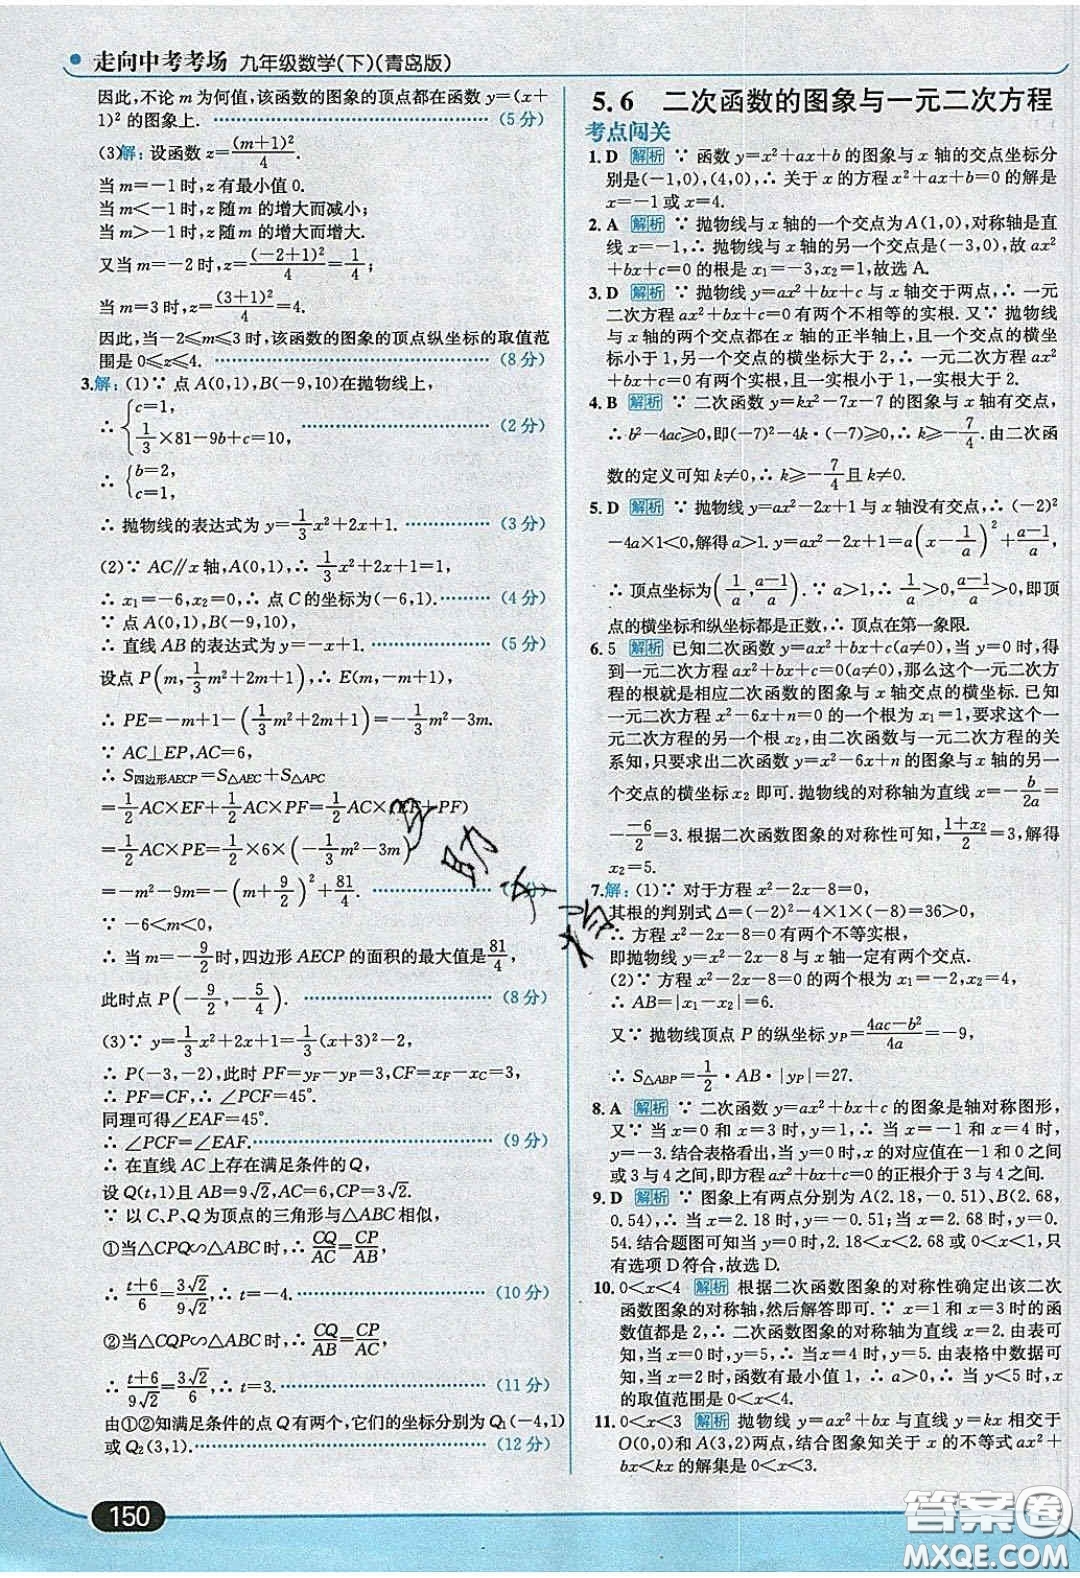 走向中考考场 九年级数学(下)(青岛版)
因此,不论m为何值,该函数的图象的顶点都在函数y=(x+
1)²的图象上. (5分)
(3)解:设函数z=(m+1)²/4.
当m=-1时,z有最小值0.
当m<-1时,z随m的增大而减小;
当m>-1时,z随m的增大而增大.
又当m=-2时,z=(-2+1)²/4=1/4;
当m=3时,z=(3+1)²/4=4.
因此,当-2≤m≤3时,该函数的图象的顶点纵坐标的取值范
围是0≤z≤4. (8分)
3.解:(1)∵点A(0,1),B(-9,10)在抛物线上,
∴{c=1,
1/3×81-9b+c=10, (2分)
∴{b=2,
c=1,
∴抛物线的表达式为y=1/3x²+2x+1. (3分)
(2)∵AC∥x轴,A(0,1),∴1/3x²+2x+1=1,
∴x₁=-6,x₂=0,∴点C的坐标为(-6,1). (4分)
∵点A(0,1),B(-9,10),
∴直线AB的表达式为y=-x+1. (5分)
设点P(m,1/3m²+2m+1),∴E(m,-m+1),
∴PE=-m+1-(1/3m²+2m+1)=-1/3m²-3m.
∵AC⊥EP,AC=6,
∴S四边形AECP=S△AEC+S△APC
=1/2AC×EF+1/2AC×PF=1/2AC×(EF+PF)
=1/2AC×PE=1/2×6×(-1/3m²-3m)
=-m²-9m=-(m+9/2)²+81/4. 分)
∵-6<m<0,
∴当m=-9/2时,四边形AECP的面积的最大值是81/4,
此时点P(-9/2,-5/4). (8分)
(3)∵y=1/3x²+2x+1=1/3(x+3)²-2,
∴P(-3,-2),此时PF=yF-yP=3,CF=xF-xC=3,
∴PF=CF,∴∠PCF=45°.
同理可得∠EAF=45°.
∴∠PCF=∠EAF. (9分)
∴在直线AC上存在满足条件的Q,
设Q(t,1)且AB=9√2,AC=6,CP=3√2.
∵以C、P、Q为顶点的三角形与△ABC相似,
①当△CPQ∽△ABC时,∴CQ/AC=CP/AB,
∴(t+6)/6=3√2/9√2,∴t=-4. (10分)
②当△CQP∽△ABC时,∴CQ/AB=CP/AC,
∴(t+6)/9√2=3√2/6,∴t=3. (11分)
由①②知满足条件的点Q有两个,它们的坐标分别为Q₁(-4,1)
或Q₂(3,1). (12分)
150
5.6 二次函数的图象与一元二次方程
考点闯关
1.D 解析 ∵函数y=x²+ax+b的图象与x轴的交点坐标分
别是(-1,0),(4,0),∴关于x的方程x²+ax+b=0的解是
x=-1或x=4.
2.A 解析 ∵抛物线与x轴的一个交点为A(1,0),对称轴是直
线x=-1,∴抛物线与x轴的另一个交点是(-3,0),故ax²
+bx+c=0的根是x₁=-3,x₂=1,故选A.
3.D 解析 ∵抛物线y=ax²+bx+c与x轴交于两点,∴一元
二次方程ax²+bx+c=0有两个不相等的实根.又∵抛物线
与x轴的两个交点都在x轴的正半轴上,且一个交点的横坐
标小于1,另一个交点的横坐标大于2,∴一元二次方程ax²+
bx+c=0有两个实根,且一实根小于1,一实根大于2.
4.B 解析 ∵二次函数y=kx²-7x-7的图象与x轴有交点,
∴b²-4ac≥0,即(-7)²-4k·(-7)≥0,∴k≥-7/4.由二次函
数的定义可知k≠0,∴k≥-7/4且k≠0.
5.D 解析 ∵抛物线y=ax²-2x+1与x轴没有交点,∴(-2)²
-4a×1<0,解得a>1.y=ax²-2x+1=a(x-1/a)²+(a-1)/a,
∴顶点坐标为(1/a,(a-1)/a).∵a>1,∴1/a>0,(a-1)/a>0,即顶
点的横坐标和纵坐标都是正数,∴顶点在第一象限.
6.5 解析 已知二次函数y=ax²+bx+c(a≠0),当y=0时,得
到一元二次方程ax²+bx+c=0(a≠0),那么这个一元二次方
程的根就是相应二次函数的图象与x轴交点的横坐标.已知
一元二次方程x²-6x+n=0的一个根为x₁=1,要求这个一
元二次方程的另一个根x₂,由二次函数与一元二次方程的关
系知,只要求出二次函数y=x²-6x+n的图象与x轴的另一
个交点的横坐标x₂即可.抛物线的对称轴为直线x=-b/2a=
--6/2=3.根据二次函数图象的对称性可知,(1+x₂)/2=3,解得
x₂=5.
7.解:(1)∵对于方程x²-2x-8=0,
其根的判别式Δ=(-2)²-4×1×(-8)=36>0,
∴方程x²-2x-8=0有两个不等实根,
即抛物线y=x²-2x-8与x轴一定有两个交点.
(2)∵方程x²-2x-8=0的两个根为x₁=-2,x₂=4,
∴AB=|x₁-x₂|=6.
又∵抛物线顶点P的纵坐标yP=(4ac-b²)/4a=-9,
∴S△ABP=1/2·AB·|yP|=27.
8.A 解析 ∵二次函数y=ax²+bx+c的图象是轴对称图形,
又∵当x=0和x=3时,y=1,∴当x=-1和x=4时,
y=-3.结合表格看出,当y=0时,x的对应值在-1和0之间
或3与4之间,即方程ax²+bx+c=0的正根介于3与4之间.
9.D 解析 ∵图象上有两点分别为A(2.18,-0.51)、B(2.68,
0.54),∴当x=2.18时,y=-0.51;当x=2.68时,y=0.
54.结合题图可知当y=0时,2.18<x<2.68,只
有选项D符合,故选D.
10.0<x<4 解析 根据二次函数图象的对称性确定出该二次
函数图象的对称轴,然后解答即可.∵x=1和x=3时的函
数值都是2,∴二次函数图象的对称轴为直线x=2.由表可
知,当x=0时,y=5,∴当x=4时,y=5.由表格中数据可
知,当x=2时,函数有最小值1,∴a>0,∴当y<5时,x
的取值范围是0<x<4.
11.0<x<3 解析 抛物线y=ax²+bx与直线y=kx相交于
O(0,0)和A(3,2)两点,结合图象知关于x的不等式ax²+
bx<kx的解集是0<x<3.
答案圈
MXQE.COM